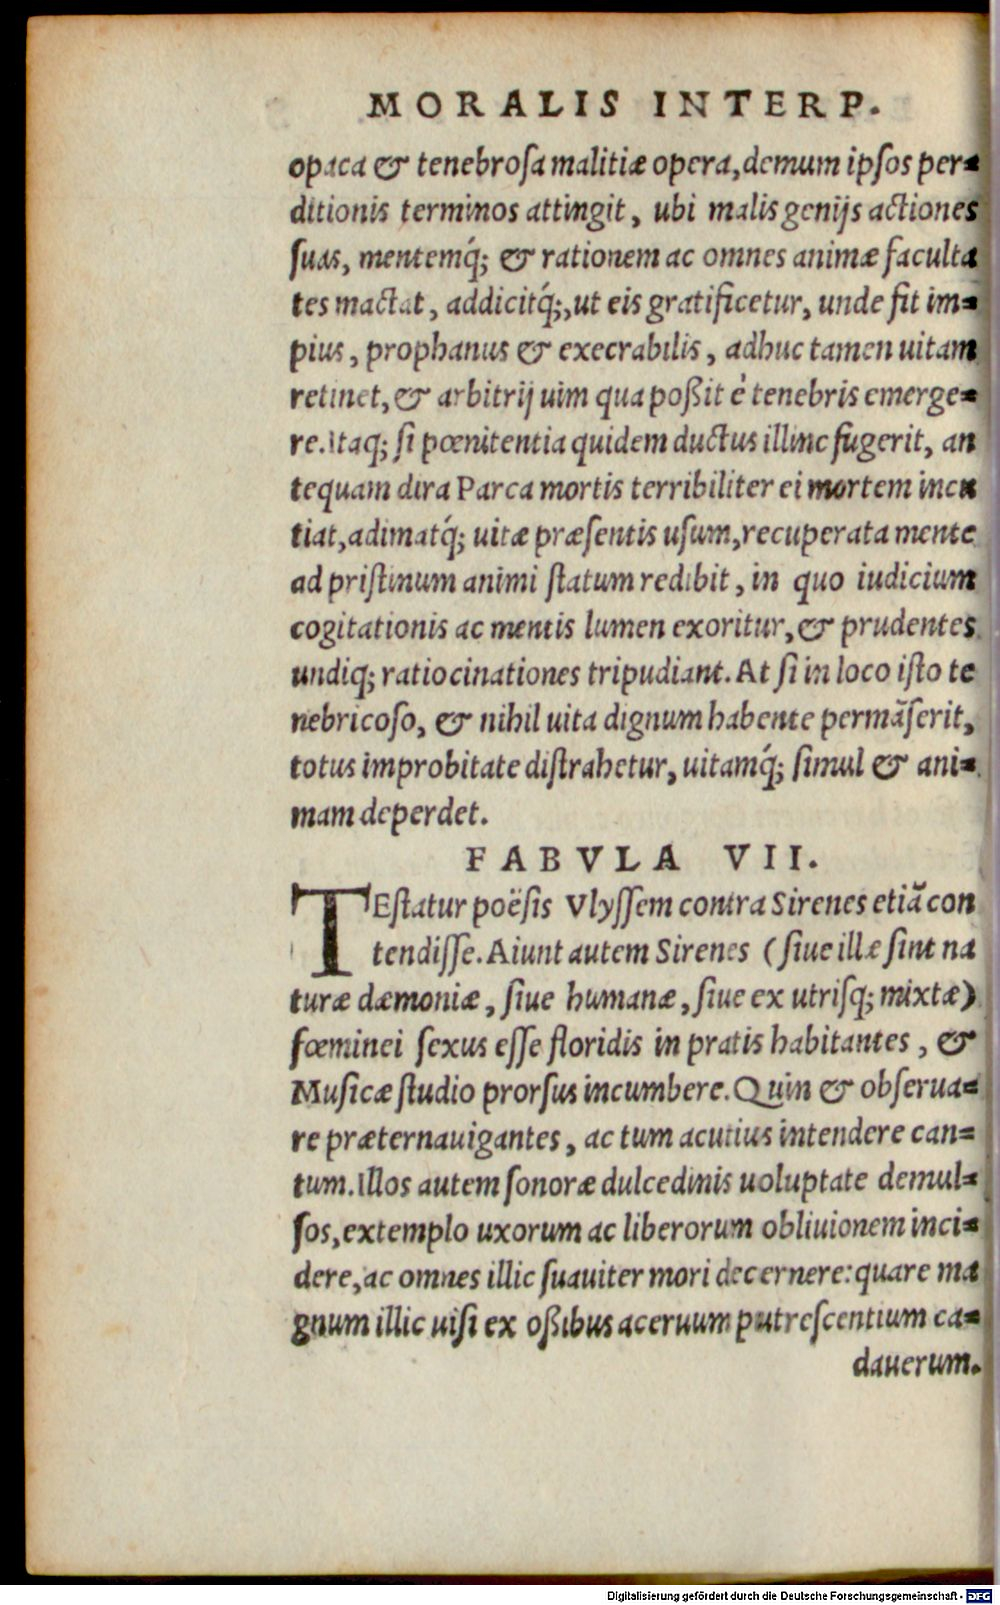 MORALIS INTERP.
opaca & tenebrosa malitiæ opera, demum ipsos per=
ditionis terminos attingit, ubi malis genijs actiones
suas, mentemq́; & rationem ac omnes animæ faculta
tes mactat, addicitq́;, ut eis gratificetur, unde fit im=
pius, prophanus & execrabilis, adhuc tamen uitam
retinet, & arbitrij uim qua poßit è tenebris emerge=
re. Itaq; si pœnitentia quidem ductus illinc fugerit, an
tequam dira Parca mortis terribiliter ei mortem incu
tiat, adimatq́; uitæ præsentis usum, recuperata mente
ad pristinum animi statum redibit, in quo iudicium
cogitationis ac mentis lumen exoritur, & prudentes
undiq; ratiocinationes tripudiant. At si in loco isto te
nebricoso, & nihil uita dignum habente permãserit,
totus improbitate distrahetur, uitamq́; simul & ani=
mam deperdet.
FABVLA VII.
TEstatur poësis Vlyssem contra Sirenes etiã con
tendisse. Aiunt autem Sirenes (siue illæ sint na
turæ dæmoniæ, siue humanæ, siue ex utrisq; mixtæ)
fœminei sexus esse floridis in pratis habitantes, &
Musicæ studio prorsus incumbere. Quin & obserua=
re præternauigantes, ac tum acutius intendere can=
tum. Illos autem sonoræ dulcedinis uoluptate demul=
sos, extemplo uxorum ac liberorum obliuionem inci=
dere, ac omnes illic suauiter mori decernere: quare ma
gnum illic uisi ex oßibus aceruum putrescentium ca=
dauerum.
Digitalisierung gefördert durch die Deutsche Forschungsgemeinschaft - DFG